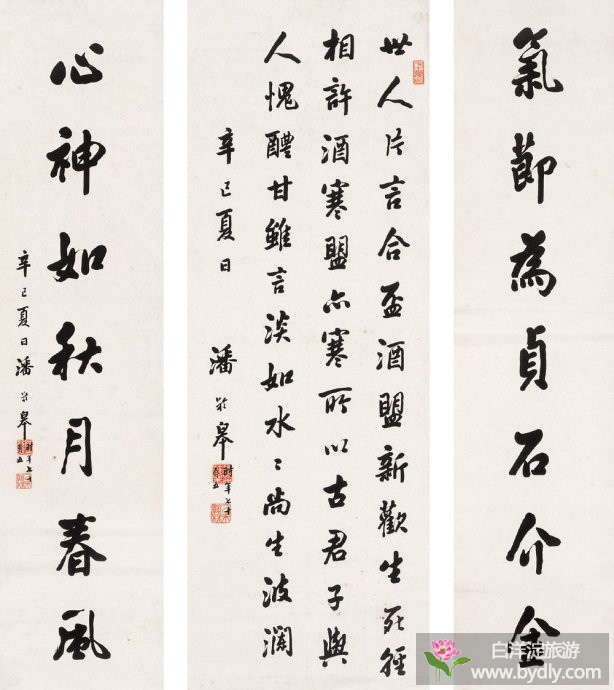 氣節為貞石介金
世人片言合盃酒盟新歡生死輕
相許酒寒盟亦寒所以古君子與
人愧醴甘雖言淡如水〻尚生波瀾
辛巳夏日
潘齡皋時年七十有五
心神如秋月春風
辛巳夏日潘齡皋時年七十有五
白洋淀旅游
www.bydly.com